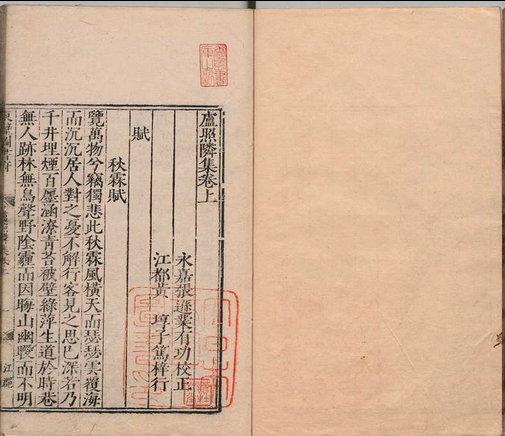 盧照隣集卷上
永嘉張遜業有功校正
江都黃埻子篤梓行
賦
秋霖賦
覽萬物兮竊獨悲此秋霖風橫天而瑟瑟雲覆海
而沉沉居人對之憂不解行客見之思已深若乃
千井埋煙百廛涵潦青苔被壁綠萍生道於時巷
無人跡林無鳥聲野陰霾而因晦山幽曖而不明